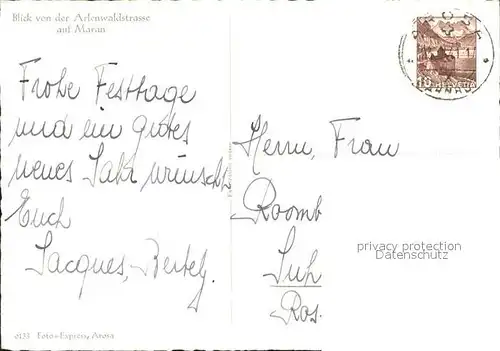 Blick von der Arlenwaldstrasse
auf Maran
Frohe Festtage
und ein gutes
neues Jahr wünscht
Euch
Jacques, Bertely.
Herrn, Frau
Roomb
Suh
Ros.
AROSA
10 HELVETIA
privacy protection
Datenschutz
0133 Foto-Express, Arosa